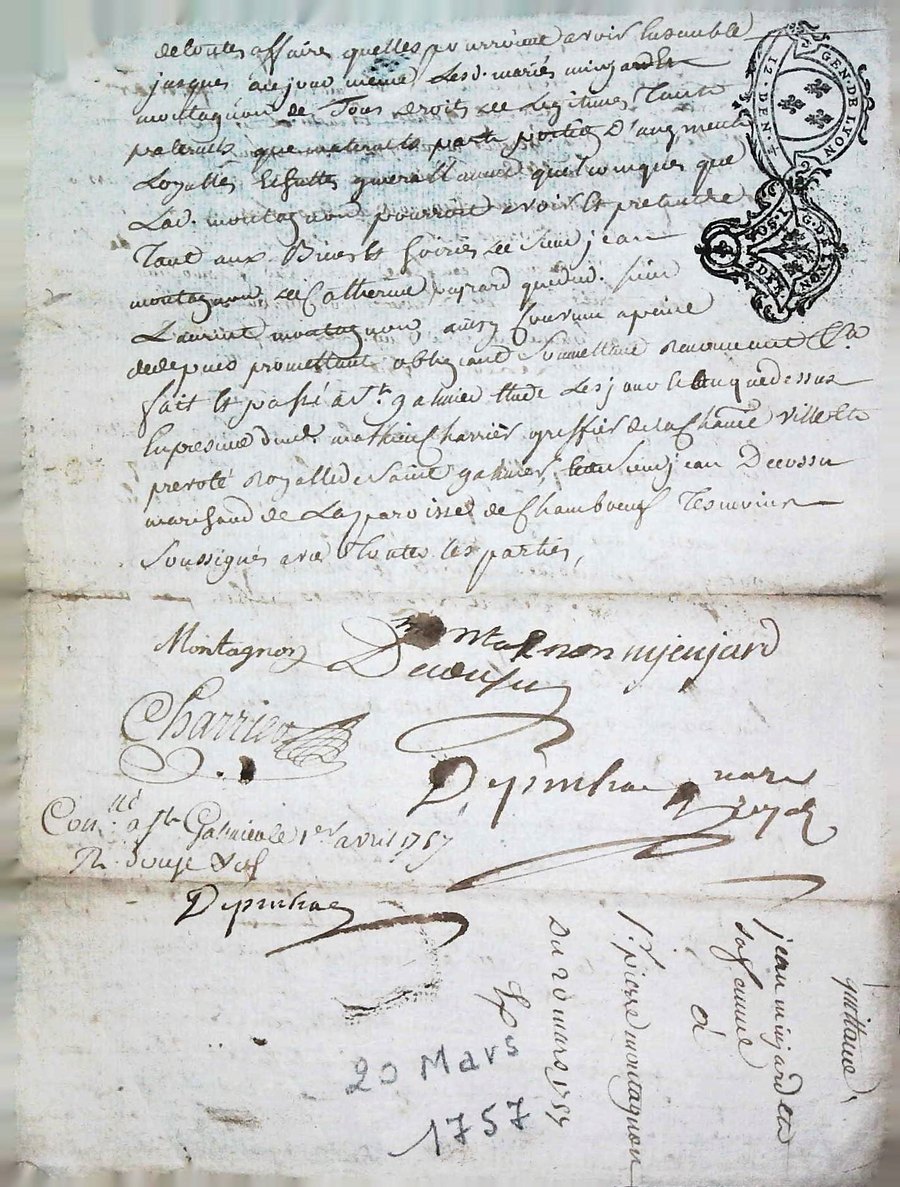 de toutes affaires quelles pourroient avoir Ensemble
jusques aujourd meme Lesd. mariés minjard Et
montagnon de Tous droits de Legitimes Tant
paternels que maternels part portion D'augment
Loyalles Et generallement quelconques que
Lad. montagnon pourroit avoir Et pretendre
Tant aux Biens Et hoiries de sieur jean
montagnon de Catherine payrard que dud. sieur
Laurent montagnon, ainsy Convenu a peine
de depens promettant obligeant Soumettant Renonceant &a
fait Et passé a St. galmier Etude Les jour Et an que dessus
En presence de me. mathieu Charrier greffier de la Chatnie ville Et
prevoté Royalle de Saint galmier, Et de Sieur jean Decoussu
marchand de La paroisse de Chambœuf Tesmoins
Soussignés avec Toutes Les parties,
Montagnon montagnon minjard
Decoussu
Charrier
Depinhac nore
Royal
Conlé a St Galmier le 1er avril 1757
R. douze sols
Depinhac
quittance,
jean minjard Et
sa femme
à
Sr. pierre montagnon
Du 20 mars 1757
20 Mars
1757
GEN. DE LYON
12. DEN.
G. DE LYON